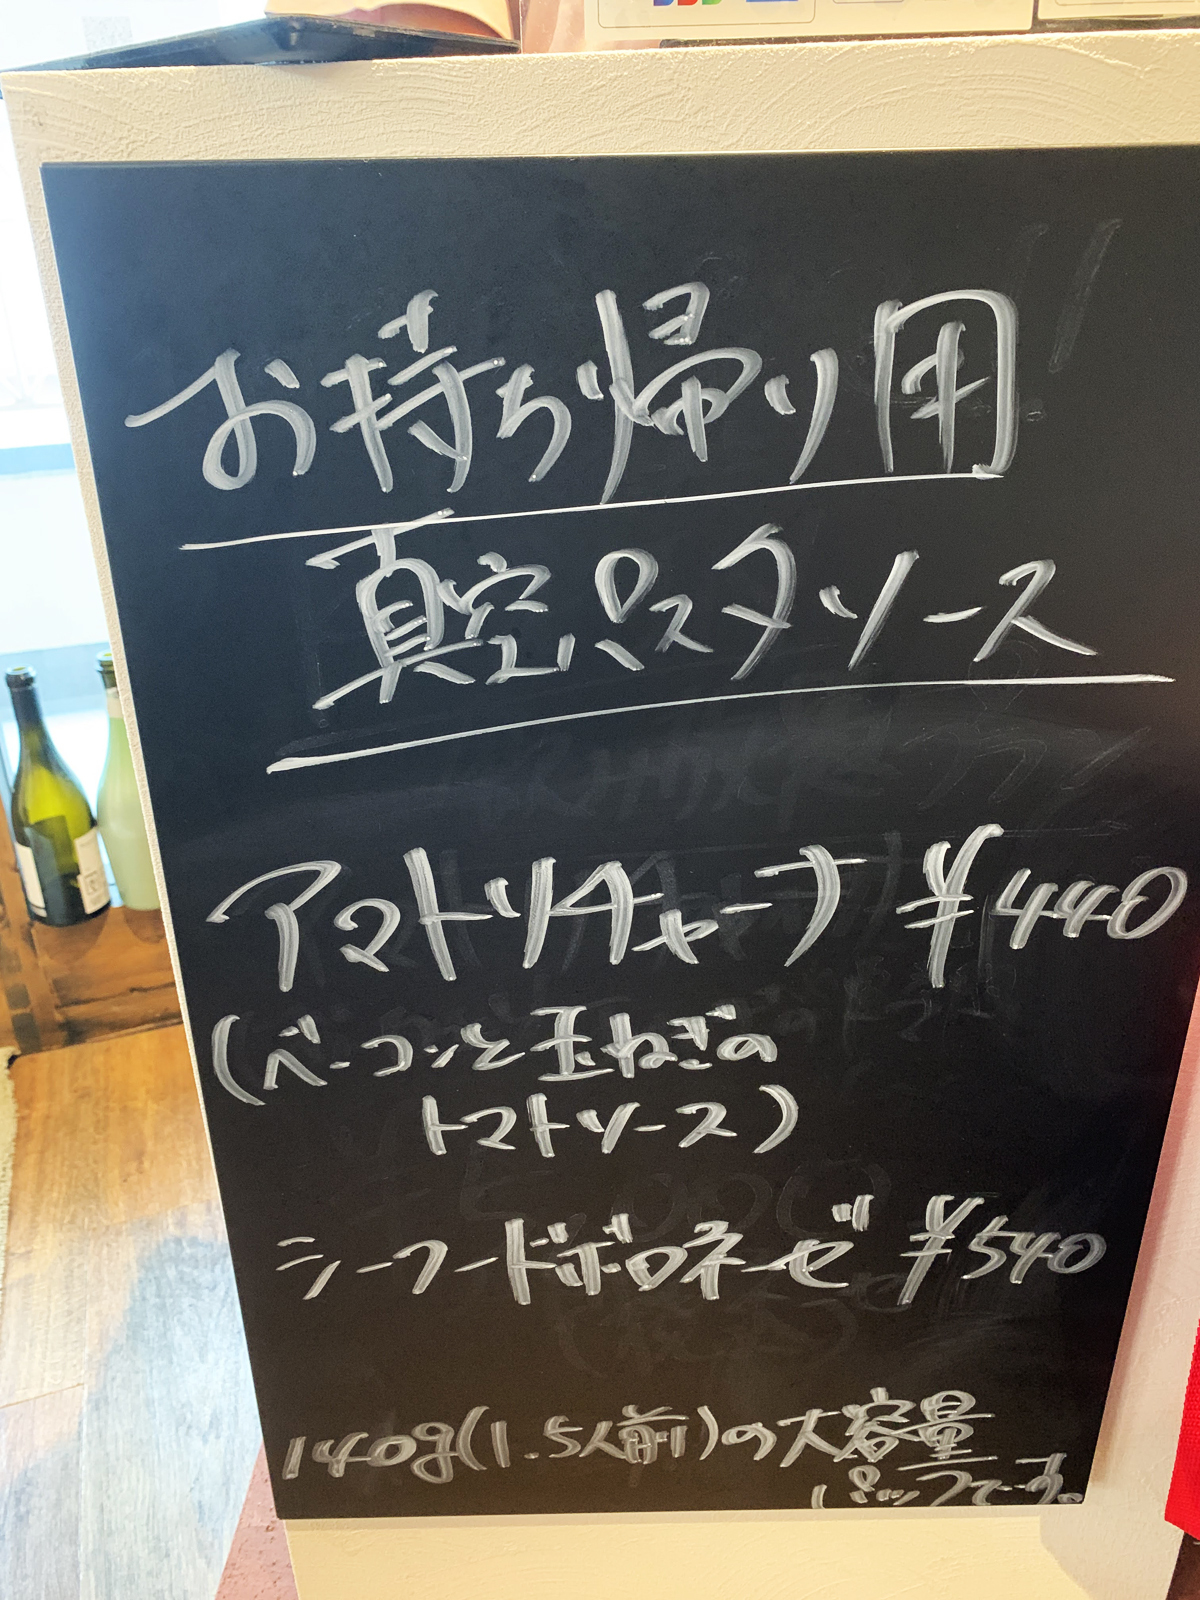 お持ち帰り用
真空パスタソース
アマトリチャーナ ¥440
(ベーコンと玉ねぎの
トマトソース)
シーフードボロネーゼ ¥540
140g(1.5人前)の大容量
パックです。